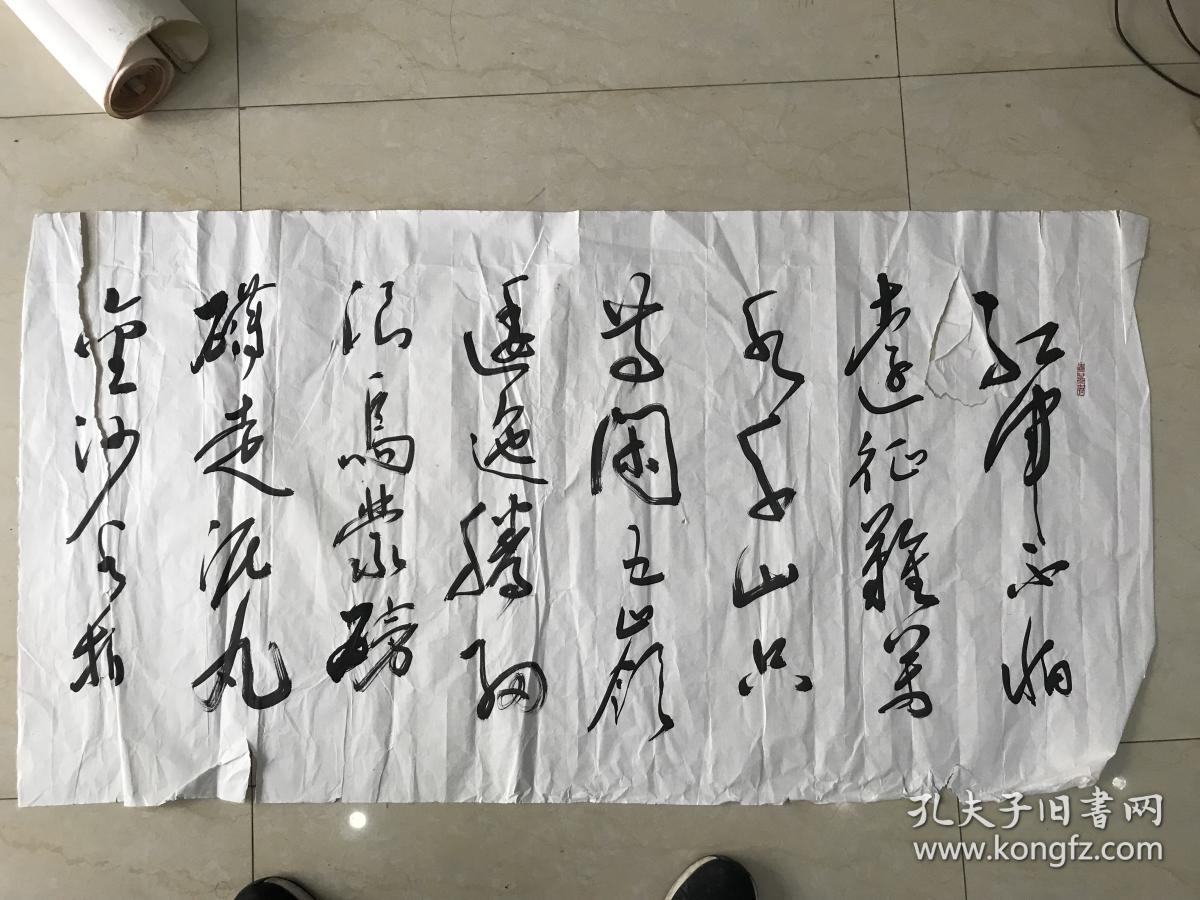 红軍不怕
遠征難萬
水千山只
等閑五嶺
逶迤騰細
浪烏蒙磅
礴走泥丸
金沙水拍
孔夫子旧书网
www.kongfz.com